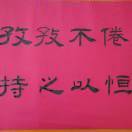 孜孜不倦
持之以恒